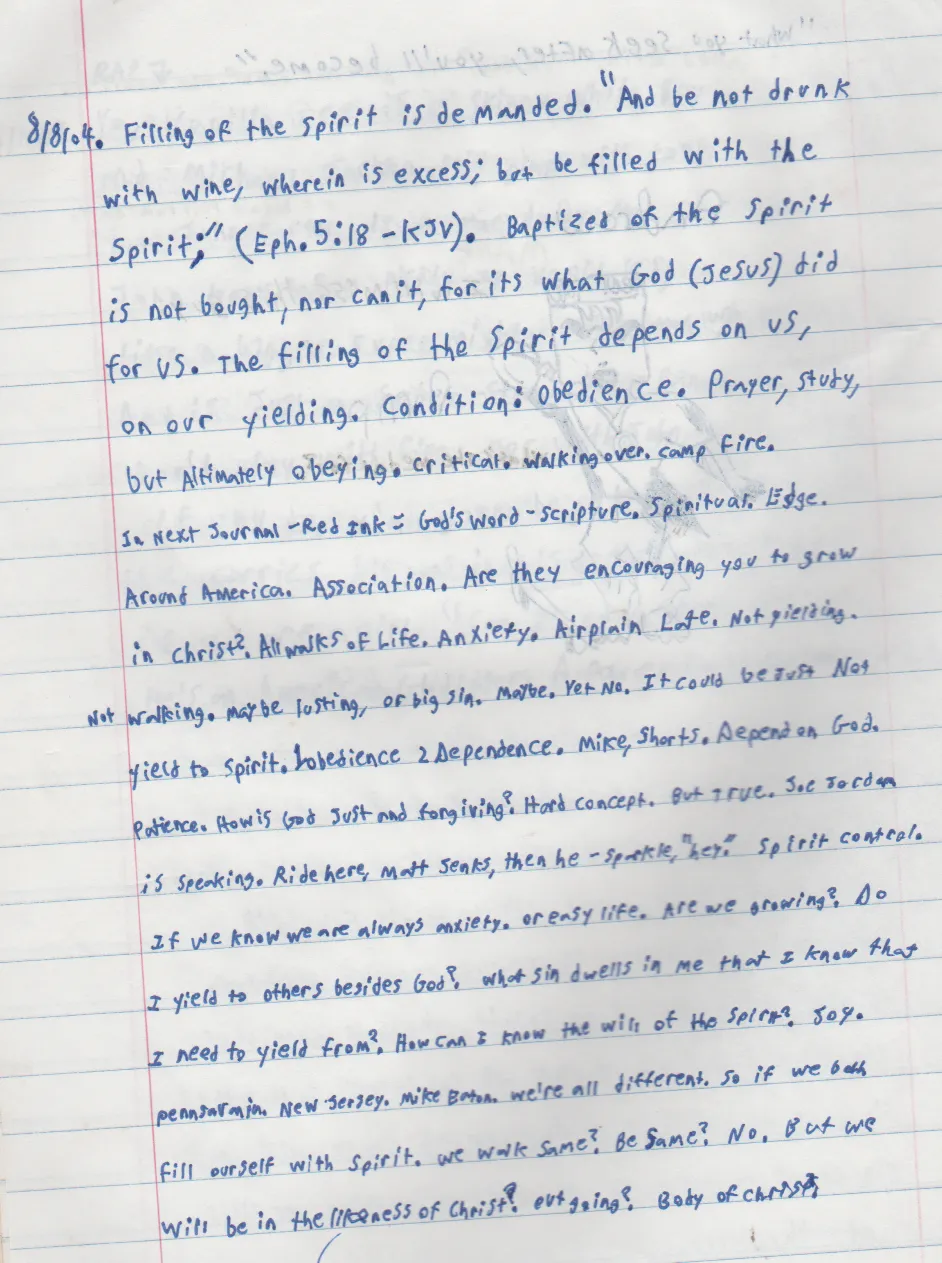 8/8/04. Filling of the spirit is demanded. "And be not drunk
with wine, wherein is excess; but be filled with the
Spirit;" (Eph. 5:18 - KJV). Baptized of the Spirit
is not bought, nor can it, for its what God (Jesus) did
for us. The filling of the Spirit depends on us,
on our yielding. Condition: Obedience. Prayer, study,
but Altimately obeying. critical. walking over. camp fire.
In Next Journal - Red Ink = God's word - scripture. Spiritual. Edge.
Around America. Association. Are they encouraging you to grow
in christ?. All walks of Life. Anxiety. Airplain Late. Not yielding.
Not walking. maybe lusting, or big sin. Maybe. Yet No. It could be just Not
yield to spirit. 1 obedience 2 Dependence. Mike, Shorts. Depend on God.
Patience. How is God Just and forgiving? Hard concept. But True. Joe Jordan
is speaking. Ride here, Matt Jenks, then he - sparkle, "hey." Spirit control.
If we know we are always anxiety. or easy life. Are we growing?. Do
I yield to others besides God?. What sin dwells in me that I know that
I need to yield from?. How can I know the will of the Spirit?. Joy.
pennsavania. New Jersey. Mike Eaton. we're all different. So if we both
fill ourself with spirit. we walk same? Be Same? No. But we
will be in the likeness of Christ? outgoing? Body of christ?